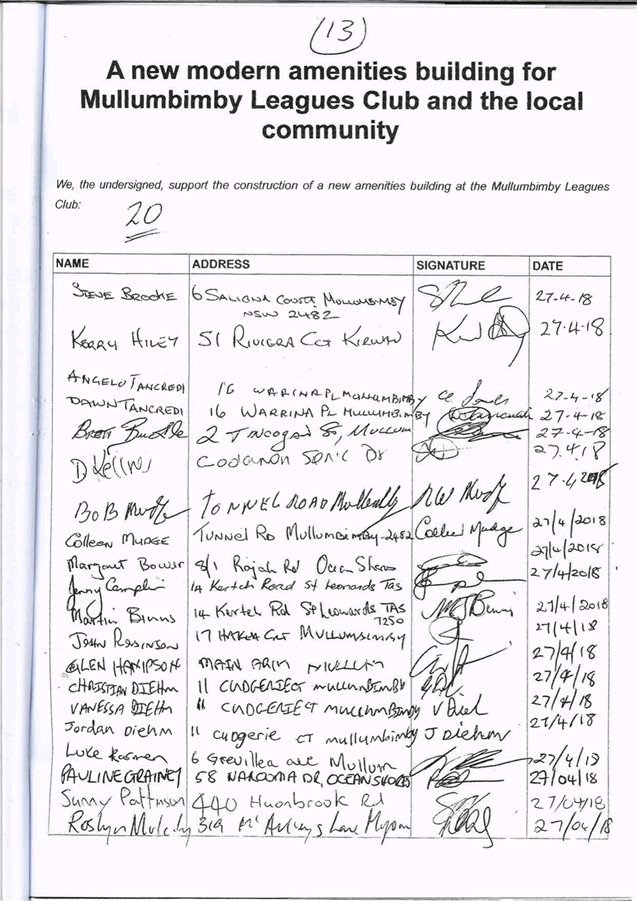 (13)
A new modern amenities building for
Mullumbimby Leagues Club and the local
community
We, the undersigned, support the construction of a new amenities building at the Mullumbimby Leagues
Club:
20
NAME ADDRESS SIGNATURE DATE
STEVE BROOKE 6 SALIGNA COURT MULLUMBIMBY 27-4-18
NSW 2482
KERRY HILEY 51 RIVIERA CCT KIRWAN 27-4-18
ANGELO TANCREDI 16 WARRINA PL MULLUMBIMBY 27-4-18
DAWN TANCREDI 16 WARRINA PL MULLUMBIMBY 27-4-18
BRETT 2 St, MULLUM 27-4-18
D 27.4.18
27-4-2018
BOB Mudge TONNEL ROAD Mullumbimby RW Mudge
COLLEEN MUDGE TUNNEL RD MULLUMBIMBY-2482 Colleen Mudge 27/4/2018
27/4/2018
Margaret Bower 8/1 Rajah Rd Ocean Shores 27/4/2018
Jenny Camplin 14 Kertch Road St Leonards TAS
Martin Binns 14 Kertch Rd St Leonards TAS 27/4/2018
7250
JOHN ROBINSON 17 HAKEA CRT MULLUMBIMBY 27/4/18
GLEN HAMPSON MAIN ARM MULLUM 27/4/18
CHRISTIAN DIEHM 11 CUDGERIE CT MULLUMBIMBY 27/4/18
VANESSA DIEHM 11 CUDGERIE CT MULLUMBIMBY V Diehl 27/4/18
Jordan Diehm 11 cudgerie ct mullumbimby J Diehm 27/4/18
Luke 6 Grevillea ave Mullum 27/4/18
PAULINE GRAINEY 58 NAROOMA DR, OCEAN SHORES 27/04/18
Sunny Pattinson 440 Huonbrook Rd 27/04/18
Roslyn 319 McAuleys Lane Myocum 27/04/18